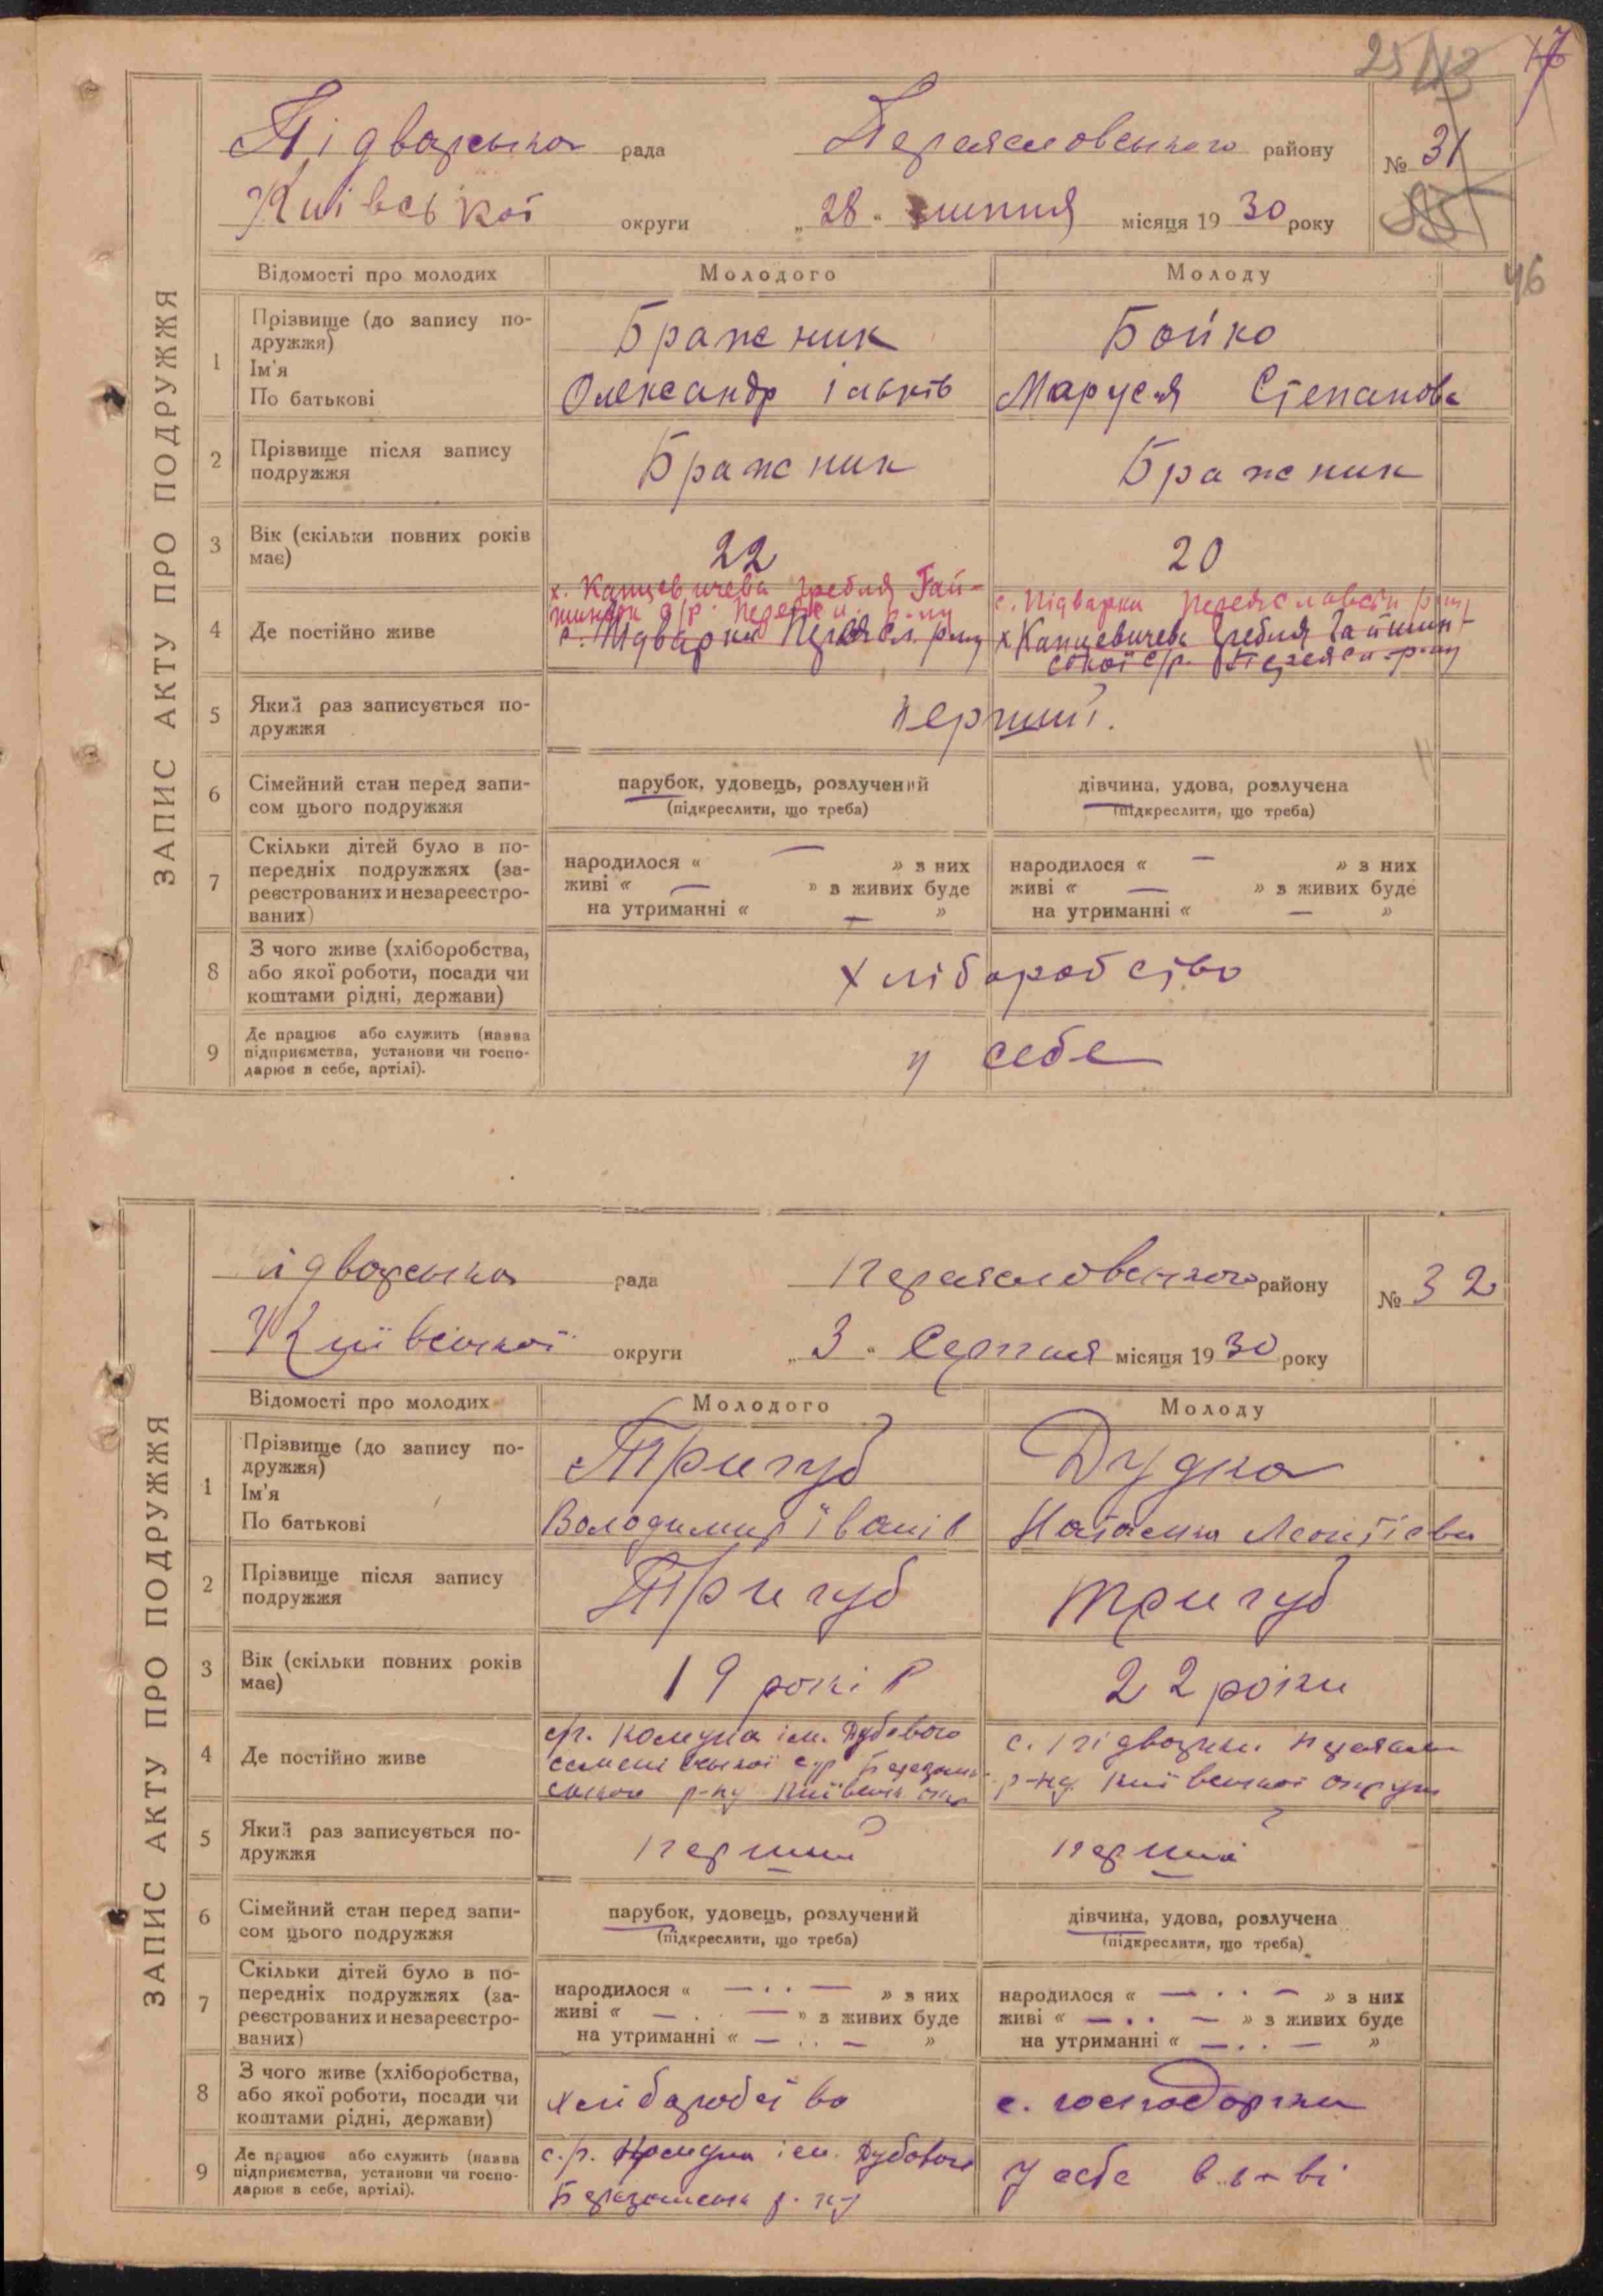 25 113 17
ЗАПИС АКТУ ПРО ПОДРУЖЖЯ
Підварська рада Переясловського району № 31
Київської округи „28“ липня місяця 1930 року
46
Відомості про молодих Молодого Молоду
1 Прізвище (до запису по-
дружжя) Бражник Бойко
Ім'я
По батькові Олександр Ільків Маруся Степанова
2 Прізвище після запису
подружжя Бражник Бражник
3 Вік (скільки повних років
має) 22 20
х. Капцевичева Гребля Гай-
с. Підварки Переяславськ р-ну
4 Де постійно живе с. Підварки Переясл. р-ну х Капцевичева Гребля Гайшин-
ської с/р. Переясл р-ну
5 Який раз записується по-
дружжя перший.
6 Сімейний стан перед запи-
сом цього подружжя парубок, удовець, розлучений дівчина, удова, розлучена
(підкреслити, що треба) (підкреслити, що треба)
7 Скільки дітей було в по-
передніх подружжях (за-
реєстрованих и незареєстро-
ваних) народилося « — » з них народилося « — » з них
живі « — » з живих буде живі « — » з живих буде
на утриманні « — » на утриманні « — »
8 З чого живе (хліборобства,
або якої роботи, посади чи
коштами рідні, держави) Хліборобство
9 Де працює або служить (назва
підприємства, установи чи госпо-
дарює в себе, артілі). у себе
ЗАПИС АКТУ ПРО ПОДРУЖЖЯ
підварська рада Переясловського району № 32
Київської округи „3“ Серпня місяця 1930 року
Відомості про молодих Молодого Молоду
1 Прізвище (до запису по-
дружжя) Тригуб Дудка
Ім'я
По батькові Володимир Іванів Наталка Леонтієва
2 Прізвище після запису
подружжя Тригуб Тригуб
3 Вік (скільки повних років
має) 19 років 22 роки
4 Де постійно живе с/г. Комуна ім. Дубового с. Підварки Переясл
р-ну Київської округи
р-ну Київськ окр
5 Який раз записується по-
дружжя перший перший
6 Сімейний стан перед запи-
сом цього подружжя парубок, удовець, розлучений дівчина, удова, розлучена
(підкреслити, що треба) (підкреслити, що треба)
7 Скільки дітей було в по-
передніх подружжях (за-
реєстрованих и незареєстро-
ваних) народилося « — . . — » з них народилося « — . . — » з них
живі « — . — » з живих буде живі « — . . — » з живих буде
на утриманні « — . . — » на утриманні « — . . — »
8 З чого живе (хліборобства,
або якої роботи, посади чи
коштами рідні, держави) хліборобство с. господарки
9 Де працює або служить (назва
підприємства, установи чи госпо-
дарює в себе, артілі). с.г. Комуна ім. Дубового У себе
р-ну